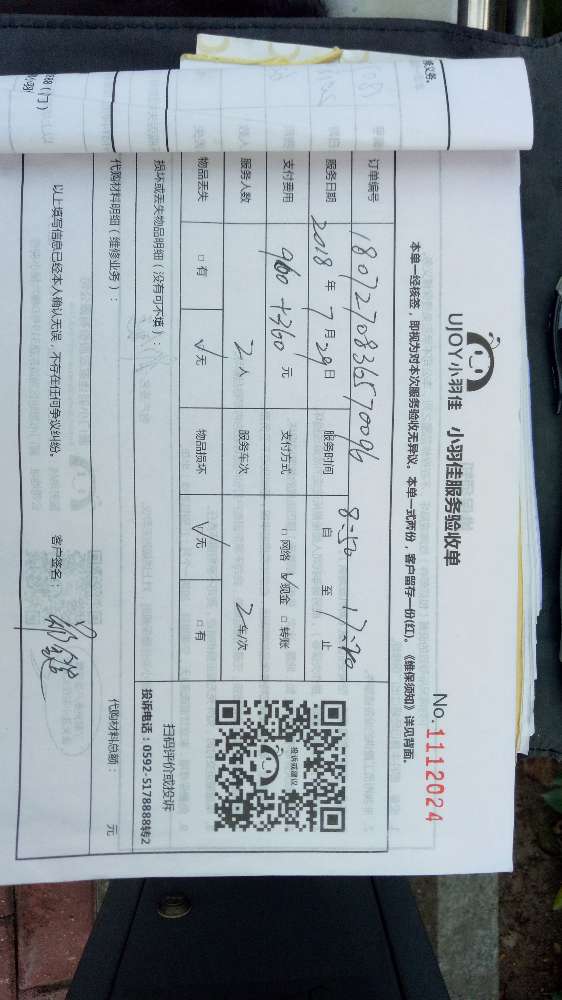 UJOY小羽佳 小羽佳服务验收单
No. 1112024
本单一经核签，即视为对本次服务验收无异议。本单一式两份，客户留存一份(红)。《维保须知》详见背面。
订单编号 1807270836570096
服务日期 2018 年 7 月 29 日 服务时间 自 8:50 至 17:20 止
支付费用 960+360 元 支付方式 □网络 ☑现金 □转账
服务人数 2 人 服务车次 2 车/次
物品丢失 □有 ☑无 物品损坏 ☑无 □有
投诉或建议
扫码评价或投诉
投诉电话：0592-5178888转2
损坏或丢失物品明细（没有可不填）：
代购材料明细（维修业务）： 代购材料总额： 元
以上填写信息已经本人确认无误，不存在任何争议纠纷。 客户签名：